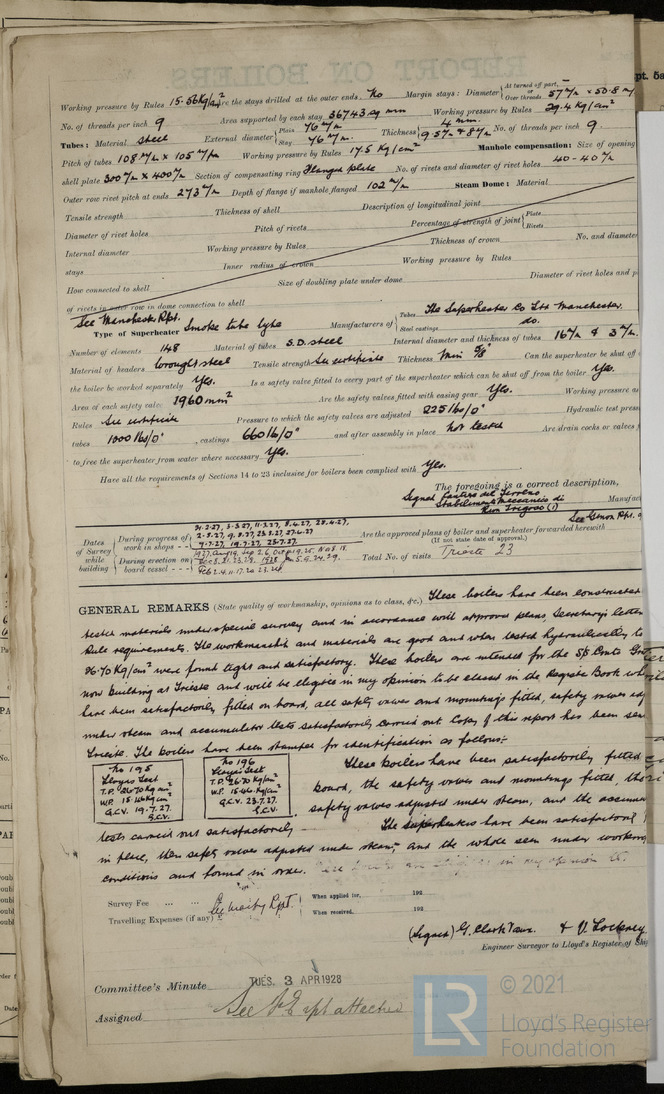 REPORT ON BOILERS
pt. 5a
Working pressure by Rules 15.56 Kg/cm² Are the stays drilled at the outer ends No Margin stays: Diameter { At turned off part, or Over threads 57 m/m × 50.8 m/
No. of threads per inch 9 Area supported by each stay 36743 sq mm Working pressure by Rules 29.4 Kg/cm²
Tubes: Material Steel External diameter { Plain 76 m/m Stay 76 m/m Thickness { 4 mm. 9.57 m & 8 m/m No. of threads per inch 9
Pitch of tubes 108 m/m × 105 m/m Working pressure by Rules 17.5 Kg/cm² Manhole compensation: Size of opening
shell plate 300 m/m × 400 m/m Section of compensating ring Flanged plate No. of rivets and diameter of rivet holes 40 - 40 m/m
Outer row rivet pitch at ends 273 m/m Depth of flange if manhole flanged 102 m/m Steam Dome: Material
Tensile strength Thickness of shell Description of longitudinal joint
Diameter of rivet holes Pitch of rivets Percentage of strength of joint { Plate Rivets
Internal diameter Working pressure by Rules Thickness of crown No. and diameter
stays Inner radius of crown Working pressure by Rules
How connected to shell Size of doubling plate under dome Diameter of rivet holes and p
of rivets in outer row in dome connection to shell
See Manchester Rpt.
Type of Superheater Smoke tube type Manufacturers of { Tubes The Superheater Co Ltd Manchester. Steel castings do.
Number of elements 148 Material of tubes S.D. steel Internal diameter and thickness of tubes 16 m/m & 3 m/m.
Material of headers Wrought steel Tensile strength See certificate Thickness Min 5/8" Can the superheater be shut off
the boiler be worked separately Yes. Is a safety valve fitted to every part of the superheater which can be shut off from the boiler Yes.
Area of each safety valve 1960 mm² Are the safety valves fitted with easing gear Yes. Working pressure as
Rules See certificate Pressure to which the safety valves are adjusted 225 lbs/□" Hydraulic test press
tubes 1000 lbs/□", castings 660 lb/□" and after assembly in place not tested Are drain cocks or valves
to free the superheater from water where necessary Yes.
Have all the requirements of Sections 14 to 23 inclusive for boilers been complied with Yes.
The foregoing is a correct description,
Signed Cantiere del Tirreno
Stabilimento Meccanico di
Riva Trigoso (1) Manufac
See Genoa Rpt.
Dates of Survey while building { During progress of work in shops - - 21.2.27, 3.3.27, 11.3.27, 8.4.27, 28.4.27,
2.5.27, 9.5.27, 23.5.27, 27.6.27
9.7.27, 19.7.27, 25.7.27.
During erection on board vessel - - -
Are the approved plans of boiler and superheater forwarded herewith
(If not state date of approval.)
Total No. of visits Trieste 23
GENERAL REMARKS (State quality of workmanship, opinions as to class, &c.) These boilers have been constructed
tested materials under special survey and in accordance with approved plans, Secretary's letter
Rule requirements. The workmanship and materials are good and when tested hydraulically to
26.70 Kg/cm² were found tight and satisfactory. These boilers are intended for the S/S Conte Gr
now building at Trieste and will be eligible in my opinion to be classed in the Register Book wh
have been satisfactorily fitted on board, all safety valves and mountings fitted, safety valves adj
under steam and accumulation tests satisfactorily carried out. Copy of this report has been sen
Trieste. The boilers have been stamped for identification as follows:-
No 195
Lloyds Test
T.P. 26.70 Kg/cm²
W.P. 15.46 Kg/cm²
G.C.V. 19.7.27.
G.C.V.
No 196
Lloyds Test
T.P. 26.70 Kg/cm²
W.P. 15.46 Kg/cm²
G.C.V. 25.7.27.
G.C.V.
These boilers have been satisfactorily fitted
board, the safety valves and mountings fitted, the
safety valves adjusted under steam, and the accumu
tests carried out satisfactorily
The superheaters have been satisfactoril
in place, their safety valves adjusted under steam, and the whole seen under working
conditions and found in order.
Survey Fee ... ... See Rpt. When applied for, 192
Travelling Expenses (if any) £ When received, 192
(Signed) G. Clark Vaux. & V. Lockney
Engineer Surveyor to Lloyd's Register of Shi
Committee's Minute TUES. 3 APR 1928
Assigned See rpt attached
© 2021
LR
Lloyd's Register
Foundation